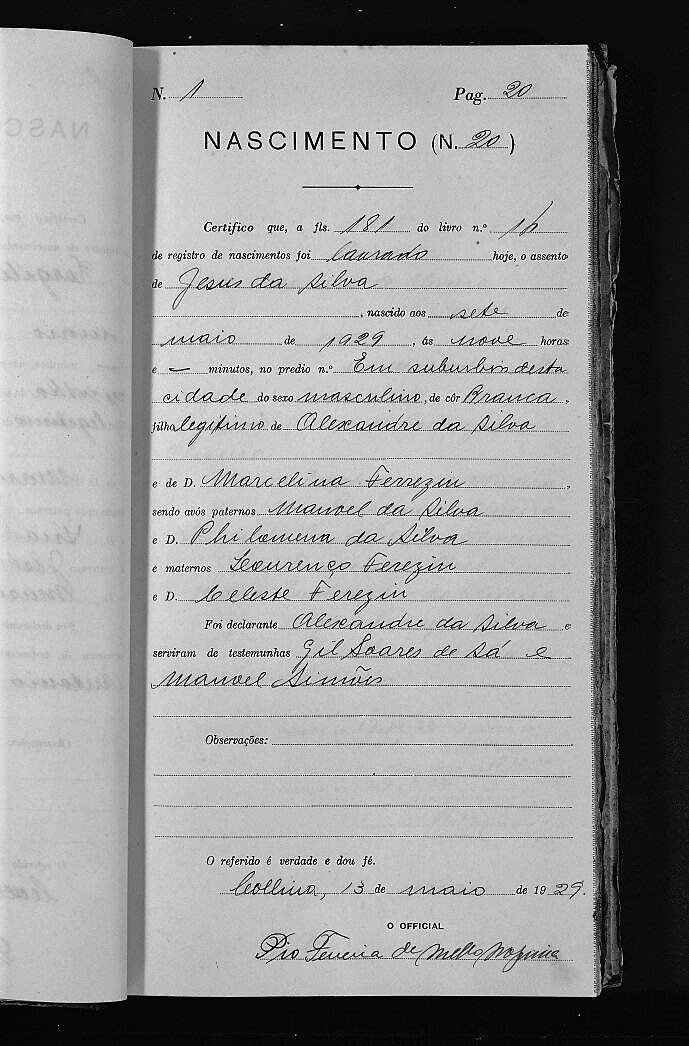 N. 1 Pag. 20
NASCIMENTO (N. 20)
Certifico que, a fls. 181 do livro n.º 16
de registro de nascimentos foi lavrado hoje, o assento
de Jesus da Silva
, nascido aos sete de
maio de 1929, ás nove horas
e — minutos, no predio n.º Em suburbios desta
cidade do sexo masculino, de côr Branca,
filho legitimo de Alexandre da Silva
e de D. Marcelina Ferezin,
sendo avós paternos Manoel da Silva
e D. Philomena da Silva
e maternos Lourenço Ferezin
e D. Celeste Ferezin
Foi declarante Alexandre da Silva e
serviram de testemunhas Gil Soares de Sá e
Manoel Simões
Observações:
O referido é verdade e dou fé.
Collina, 13 de maio de 1929.
O OFFICIAL
Pio Ferreira de Mello